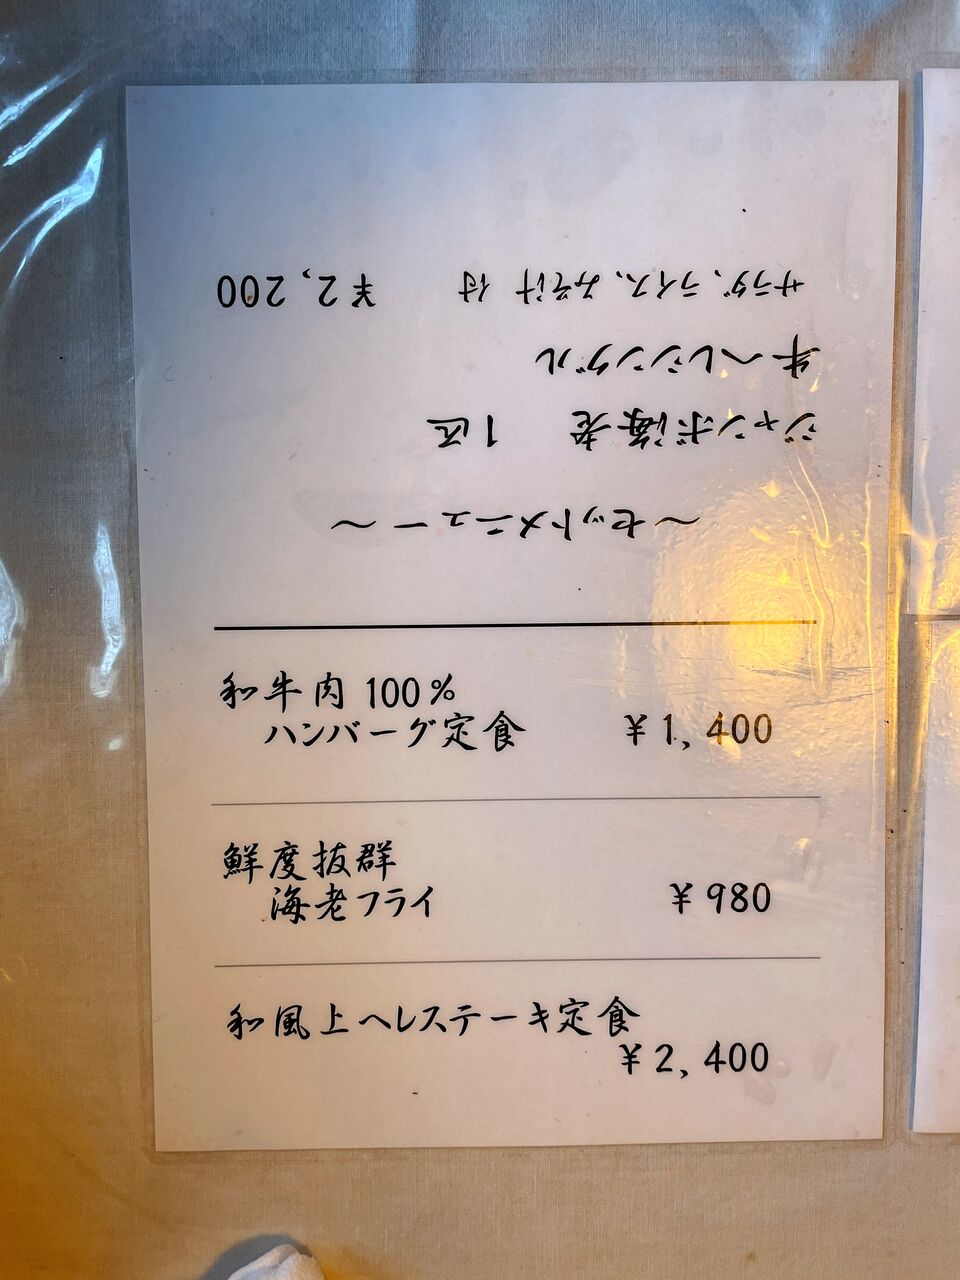 ~セットメニュー~
ジャンボ海老 1匹
牛ヘレシングル
サラダ、ライス、みそ汁 付 ¥2,200
和牛肉 100%
ハンバーグ定食 ¥1,400
鮮度抜群
海老フライ ¥980
和風上ヘレステーキ定食
¥2,400